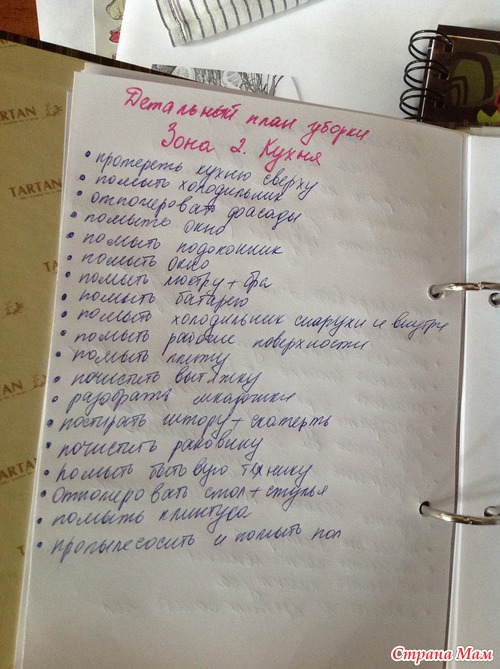 TARTAN
TARTAN
TARTAN
TARTAN
Детальный план уборки
Зона 2. Кухня
• протереть кухню сверху
• помыть холодильник
• отполировать фасады
• помыть окно
• помыть подоконник
• помыть окно
• помыть люстру + бра
• помыть батарею
• помыть холодильник снаружи и внутри
• помыть рабочие поверхности
• помыть плиту
• почистить вытяжку
• разобрать шкафчики
• постирать штору + скатерть
• почистить раковину
• помыть бытовую технику
• отполировать стол + стулья
• помыть плинтуса
• пропылесосить и помыть пол
Страна Мам